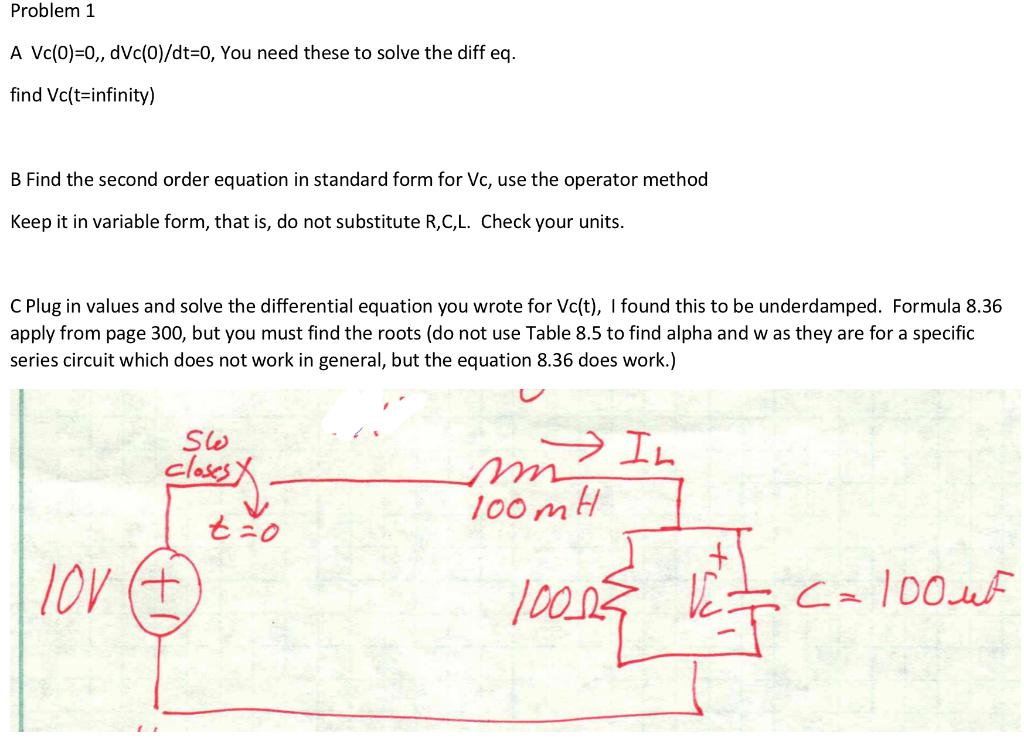 Problem 1
A Vc(0)=0,, dVc(0)/dt=0, You need these to solve the diff eq.
find Vc(t=infinity)
B Find the second order equation in standard form for Vc, use the operator method
Keep it in variable form, that is, do not substitute R,C,L. Check your units.
C Plug in values and solve the differential equation you wrote for Vc(t), I found this to be underdamped. Formula 8.36
apply from page 300, but you must find the roots (do not use Table 8.5 to find alpha and w as they are for a specific
series circuit which does not work in general, but the equation 8.36 does work.)
SW
closes
t=0
→ IL
100mH
10V
+
-
100Ω
+
Vc
-
C = 100uF